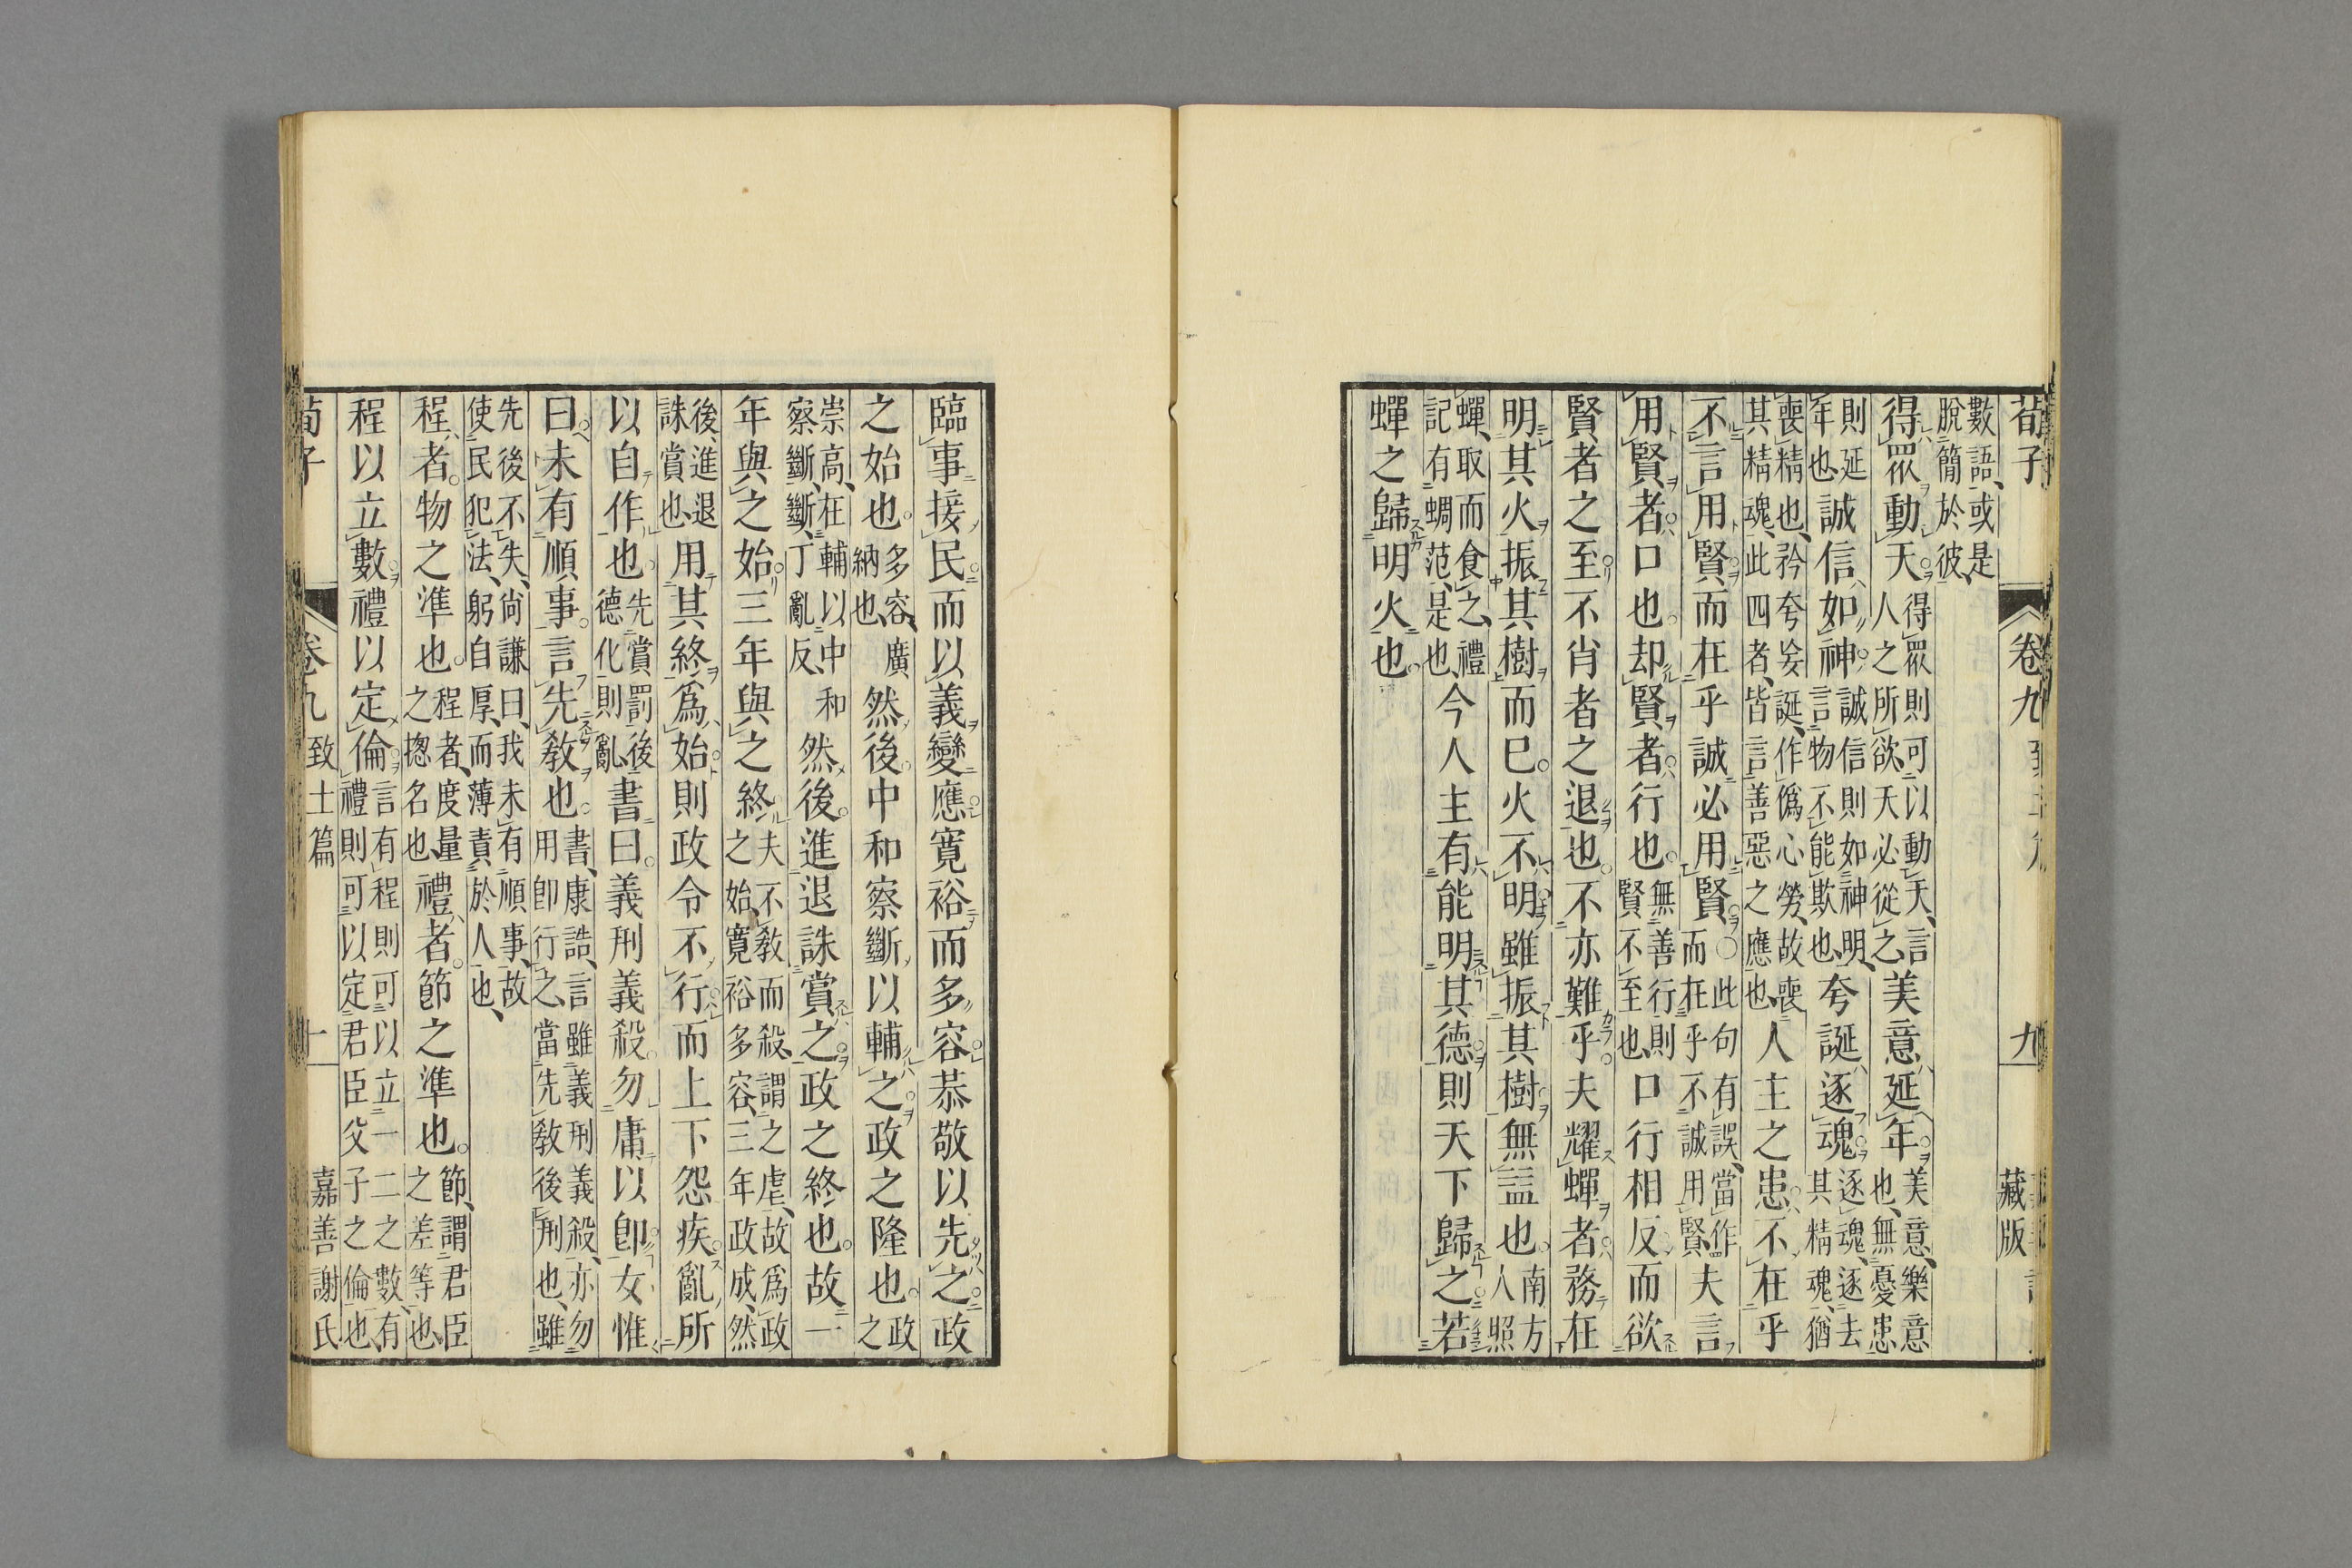 荀子　卷九　九　藏版
數語、或是脫簡於彼、
得衆動天。得衆則可以動天、言人之所欲天必從之、美意延年。美意、樂意也、無憂患
則延年也、誠信如神。誠信則如神明、言物不能欺也、夸誕逐魂。逐魂、逐去其精魂、猶
喪精也、矜夸妄誕、作僞心勞、故喪其精魂、此四者、皆言善惡之應也、人主之患、不在乎
不言用賢、而在乎誠必用賢。○此句有誤、當作而在乎不誠用賢、夫言
用賢者口也。却賢者行也。無善行則賢不至也、口行相反而欲
賢者之至不肖者之退也。不亦難乎。夫耀蟬者務在
明其火振其樹而已。火不明雖振其樹無益也。南方人照
蟬、取而食之、禮記有蜩范、是也、今人主有能明其德則天下歸之若
蟬之歸明火也。
臨事接民而以義變應寬裕而多容恭敬以先之政
之始也。多容、廣納也、然後中和察斷以輔之政之隆也。政之
崇高、在輔以中和察斷、斷、丁亂反、然後進退誅賞之政之終也。故一
年與之始三年與之終夫不敎而殺、謂之虐、故爲政之始、寬裕多容、三年政成、然
後、進退誅賞也、用其終爲始則政令不行而上下怨疾亂所
以自作也先賞罰後德化則亂、書曰。義刑義殺。勿庸以卽女惟
曰未有順事。言先敎也。書、康誥、言雖義刑義殺、亦勿用卽行之、當先敎後刑也、雖
先後不失、尙謙曰、我未有順事、故使民犯法、躬自厚、而薄責於人也、
程者。物之準也。程者、度量之揔名也、禮者。節之準也。節、謂君臣之差等也、
程以立數禮以定倫言有程則可以立一二之數、有禮則可以定君臣父子之倫也、
荀子　卷九　致士篇　十　嘉善謝氏